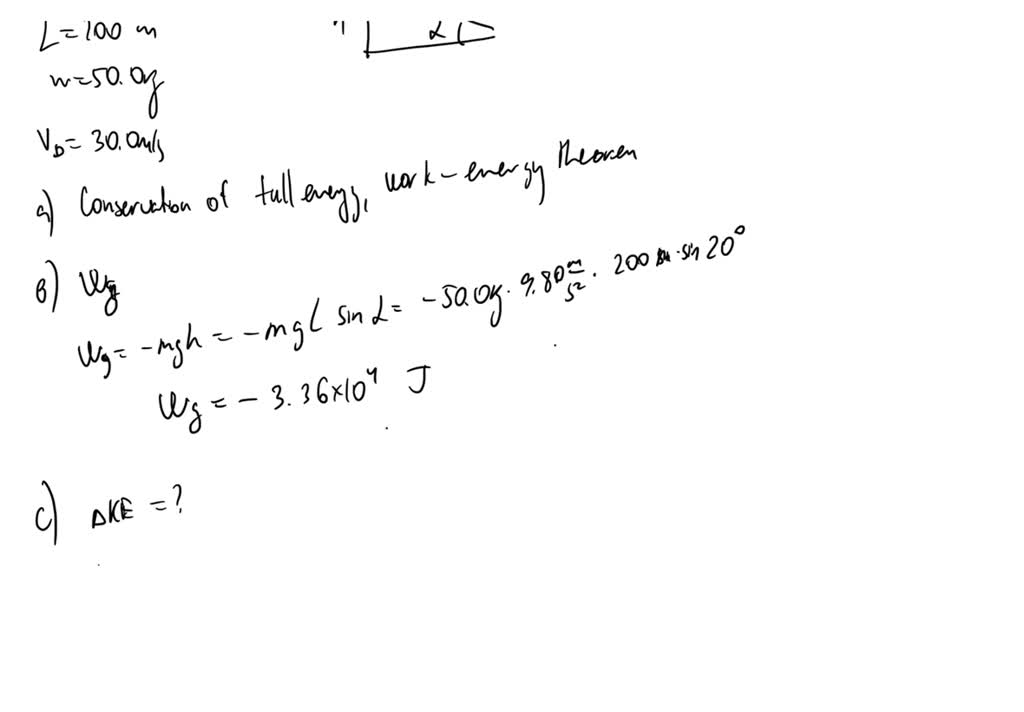 L = 200 m
α
m = 50.0 kg
V_D = 30.0 m/s
a) Conservation of full energy, work - energy theorem
b) Wg
Wg = -mgh = -mgL sin α = -50.0 kg · 9.80 m/s² · 200 m · sin 20°
Wg = - 3.36×10⁴ J
c) ΔKE = ?